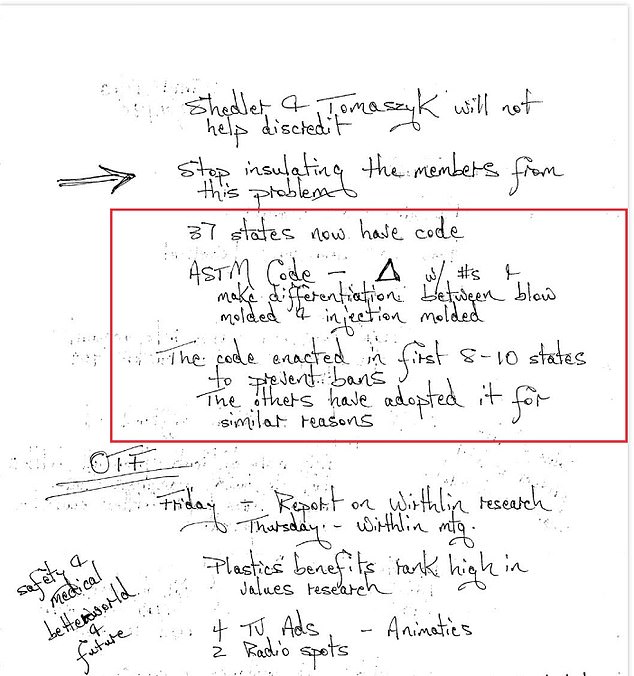 Shedler & Tomaszyk will not
help discredit
Stop insulating the members from
this problem
37 states now have code
ASTM Code – Δ w/ #s &
make differentiation between blow
molded & injection molded
The code enacted in first 8-10 states
to prevent bans
The others have adopted it for
similar reasons
Friday – Report on Wirthlin research
Thursday – Wirthlin mtg.
Plastics benefits rank high in
values research
safety &
medical
better world
&
future
4 TV Ads – Animatics
2 Radio spots